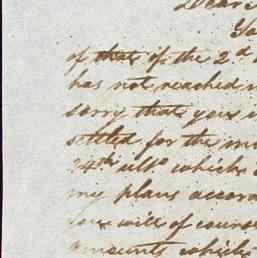 Dear
Yo
of that of the 2d
has not reached
sorry that you
settled for the
24th ulto which
my plans accor
you will of course
amounts which